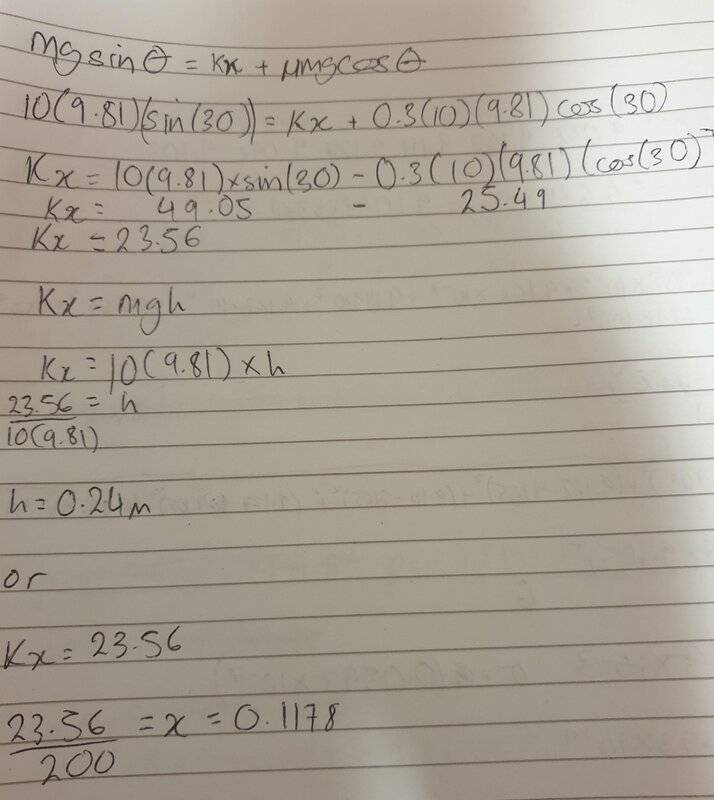 mg sin θ = Kx + μmg cos θ
10(9.81)(sin(30)) = Kx + 0.3(10)(9.81) cos(30)
Kx = 10(9.81) × sin(30) - 0.3(10)(9.81)(cos(30)
Kx = 49.05 - 25.49
Kx = 23.56
Kx = mgh
Kx = 10(9.81) × h
23.56 = h
10(9.81)
h = 0.24m
or
Kx = 23.56
23.56 = x = 0.1178
200